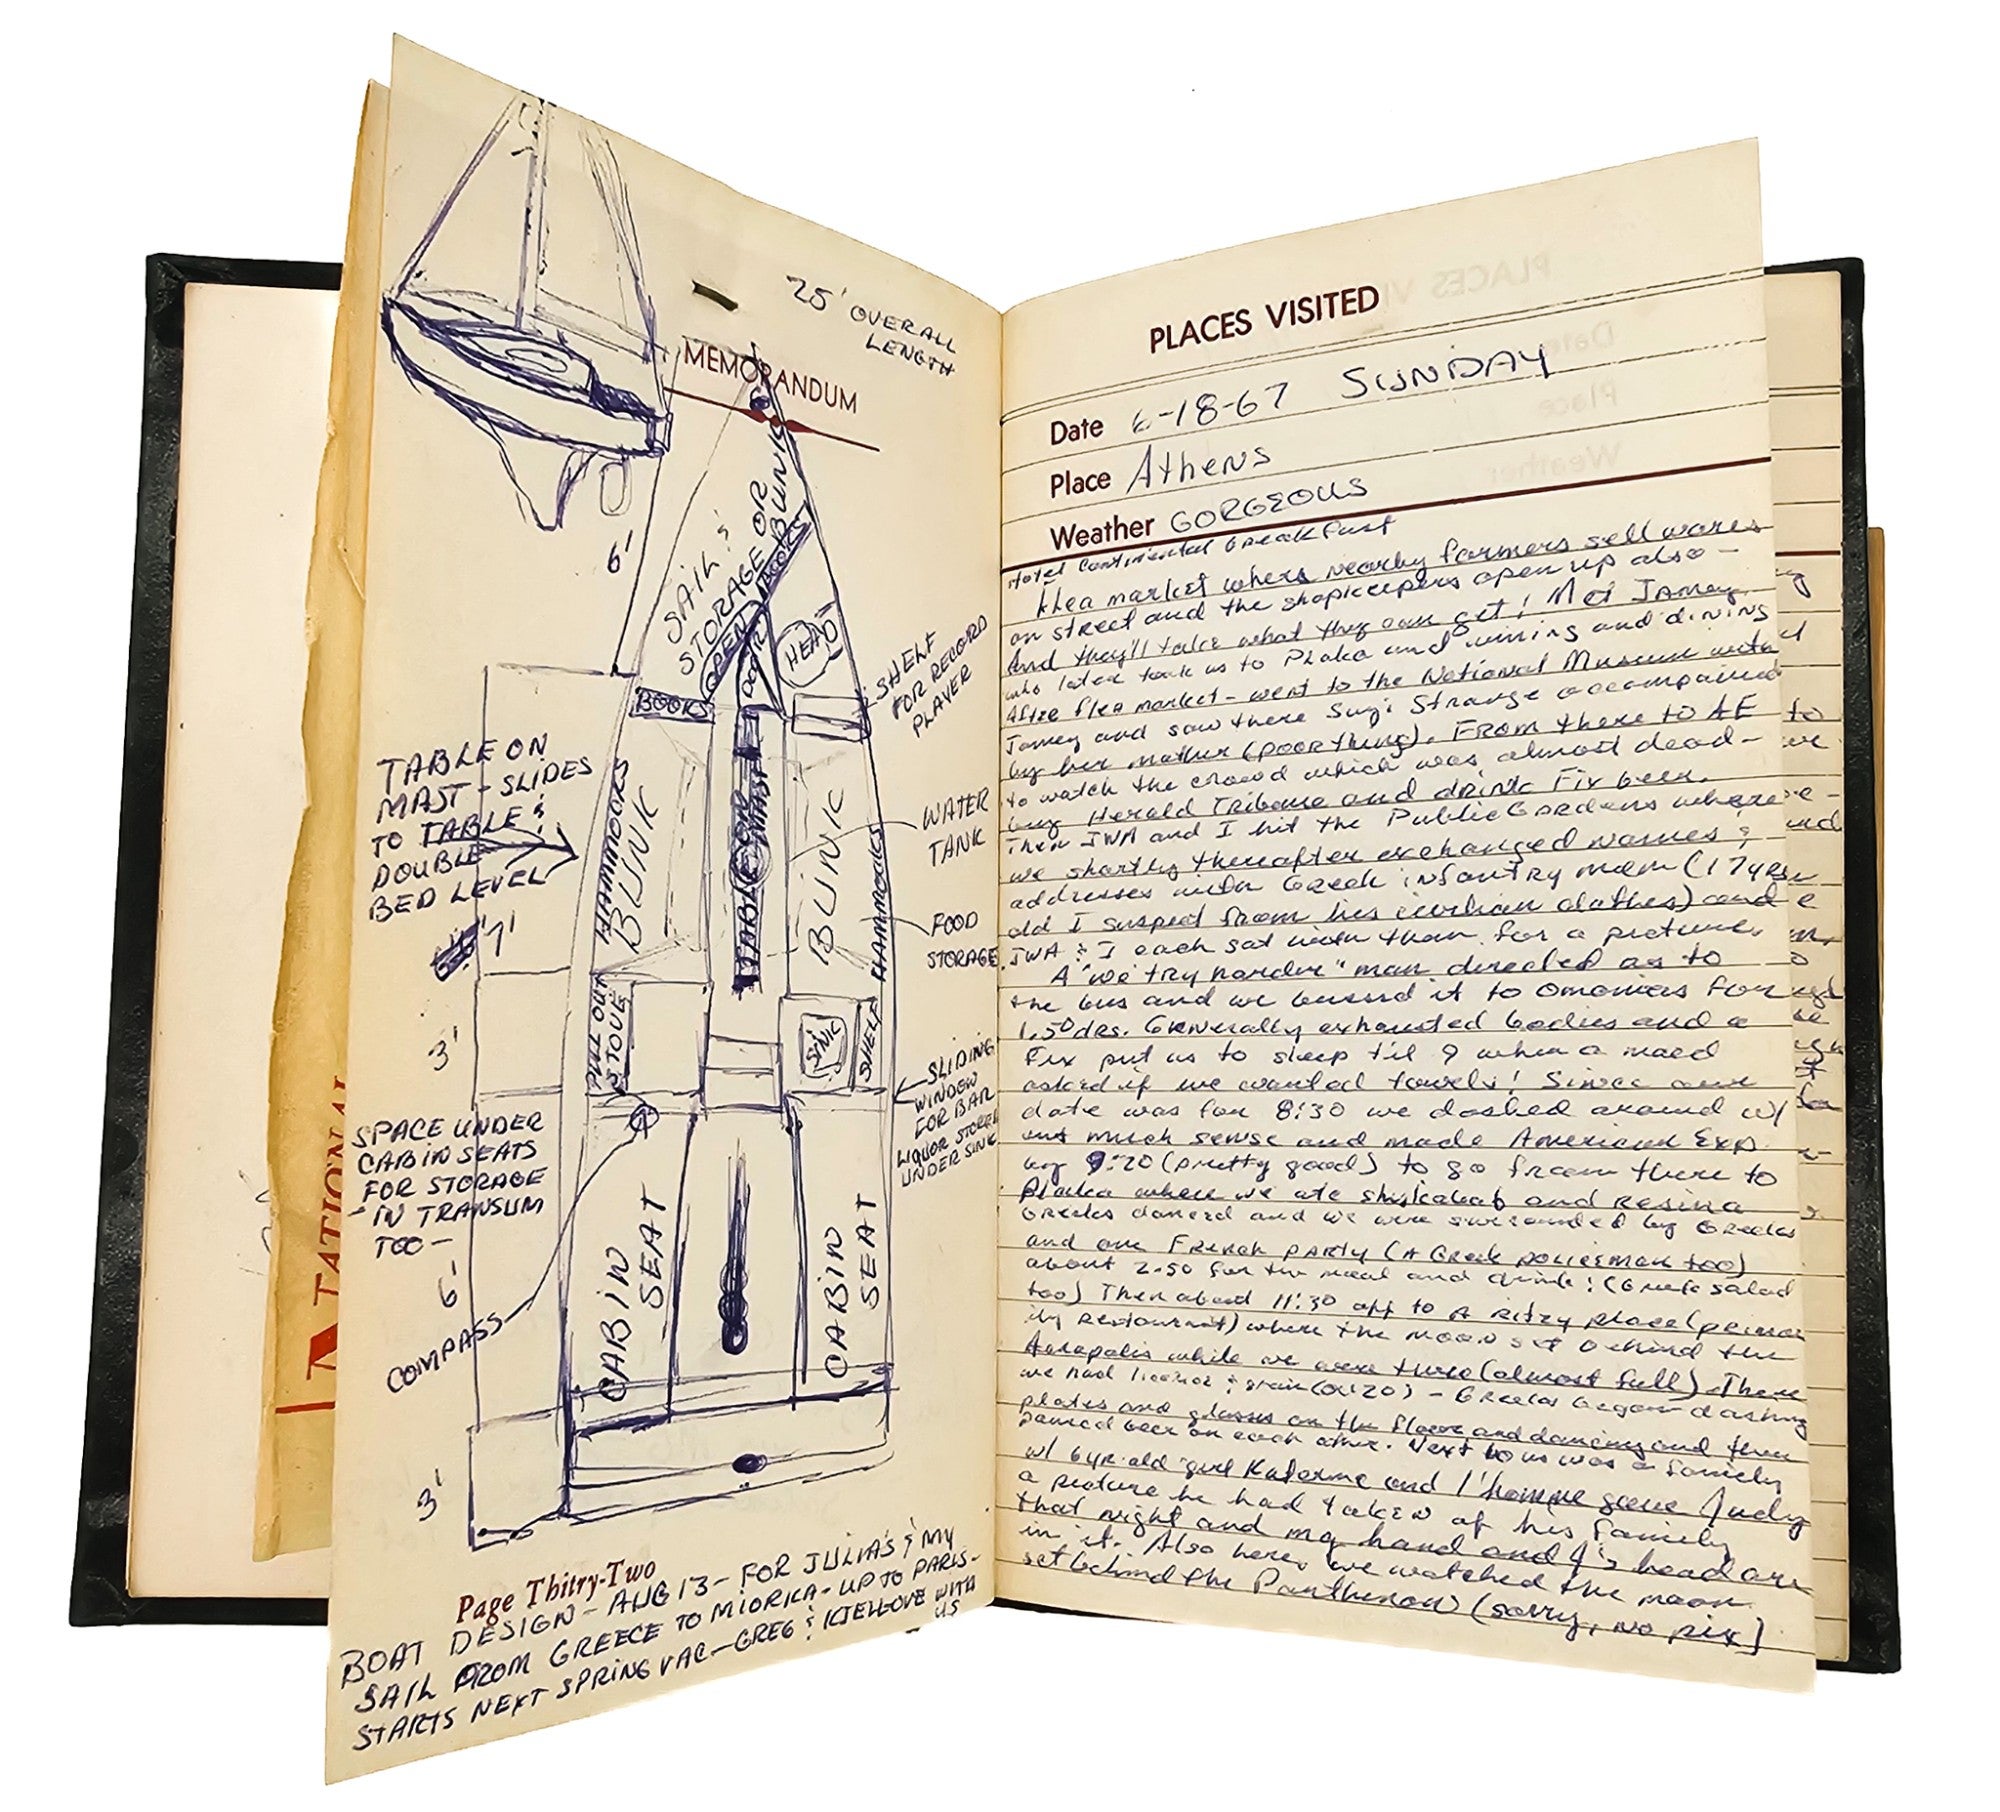 25' OVERALL
LENGTH
MEMORANDUM
6'
SAIL &
STORAGE OR
BUNK
OPEN
DOOR
HEAD
BOOKS
SHELF
FOR RECORD
PLAYER
TABLE ON
MAST - SLIDES
TO TABLE &
DOUBLE
BED LEVEL
HAMMOCKS
BUNK
TABLE FOR
BUNK
HAMMOCKS
WATER
TANK
FOOD
STORAGE
7'
3'
PULL OUT
STOVE
SINK
SHELF
SLIDING
WINDOW
FOR BAR
LIQUOR STORED
UNDER SINK
SPACE UNDER
CABIN SEATS
FOR STORAGE
- IN TRANSUM
TOO -
6'
COMPASS
CABIN
SEAT
CABIN
SEAT
3'
Page Thitry-Two
BOAT DESIGN - AUG 13 - FOR JULIA'S & MY
SAIL FROM GREECE TO MIORKA - UP TO PARIS -
STARTS NEXT SPRING VAC - GREG & KJELLOVE WITH
US
NATIONAL
PLACES VISITED
Date 6-18-67 SUNDAY
Place Athens
Weather GORGEOUS
Hotel Continental breakfast
Flea market where nearby farmers sell wares
on street and the shopkeepers open up also -
And they'll take what they can get! Met Jamey
who later took us to Plaka and wining and dining
After flea market - went to the National Museum with
Jamey and saw there Suzi Strange accompanied
by her mother (poor thing). From there to AE
to watch the crowd which was almost dead -
buy Herald Tribune and drink Fix beer.
Then JWA and I hit the Public Gardens where
we shortly thereafter exchanged names &
addresses with Greek infantry men (17 yrs
old I suspect from his civilian clothes) and
JWA & I each sat with them for a picture.
A "we try harder" man directed as to
the bus and we bussed it to Omonias for
1.50 drs. Generally exhausted bodies and a
Fix put us to sleep til 9 when a maid
asked if we wanted towels! Since our
date was for 8:30 we dashed around w/
out much sense and made American Exp.
by 9:20 (pretty good) to go from there to
Plaka where we ate shiskabab and resina
Greeks danced and we were surrounded by Greeks
and one French party (A Greek policeman too)
about 2.50 for the meal and drink! (Greek salad
too) Then about 11:30 off to a Ritzy place (
restaurant) where the moon set behind the
Acropolis while we were there (almost full). There
we had - Greeks began dashing
plates and glasses on the floor and dancing and then
poured beer on each other. Next to us was a family
w/ 6 yr. old girl Katerine and l'homme gave Judy
a picture he had taken of his family
that night and my hand and J's head are
in it. Also here, we watched the moon
set behind the Panthenon (sorry, no pix)